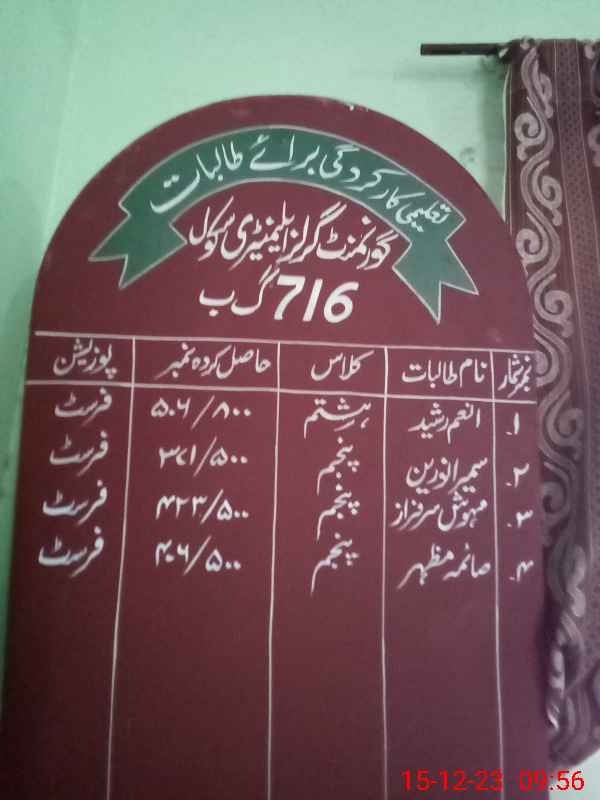 تعلیمی کارکردگی برائے طالبات
گورنمنٹ گرلز ایلیمنٹری سکول
716 گ ب
نمبر شمار نام طالبات کلاس حاصل کردہ نمبر پوزیشن
۱۔ انعم رشید ہشتم ۵۰۶/۸۰۰ فرسٹ
۲۔ سمیرا نورین پنجم ۳۷۱/۵۰۰ فرسٹ
۳۔ مہوش سرفراز پنجم ۴۲۳/۵۰۰ فرسٹ
۴۔ صائمہ مظہر پنجم ۴۰۶/۵۰۰ فرسٹ
15-12-23 09:56